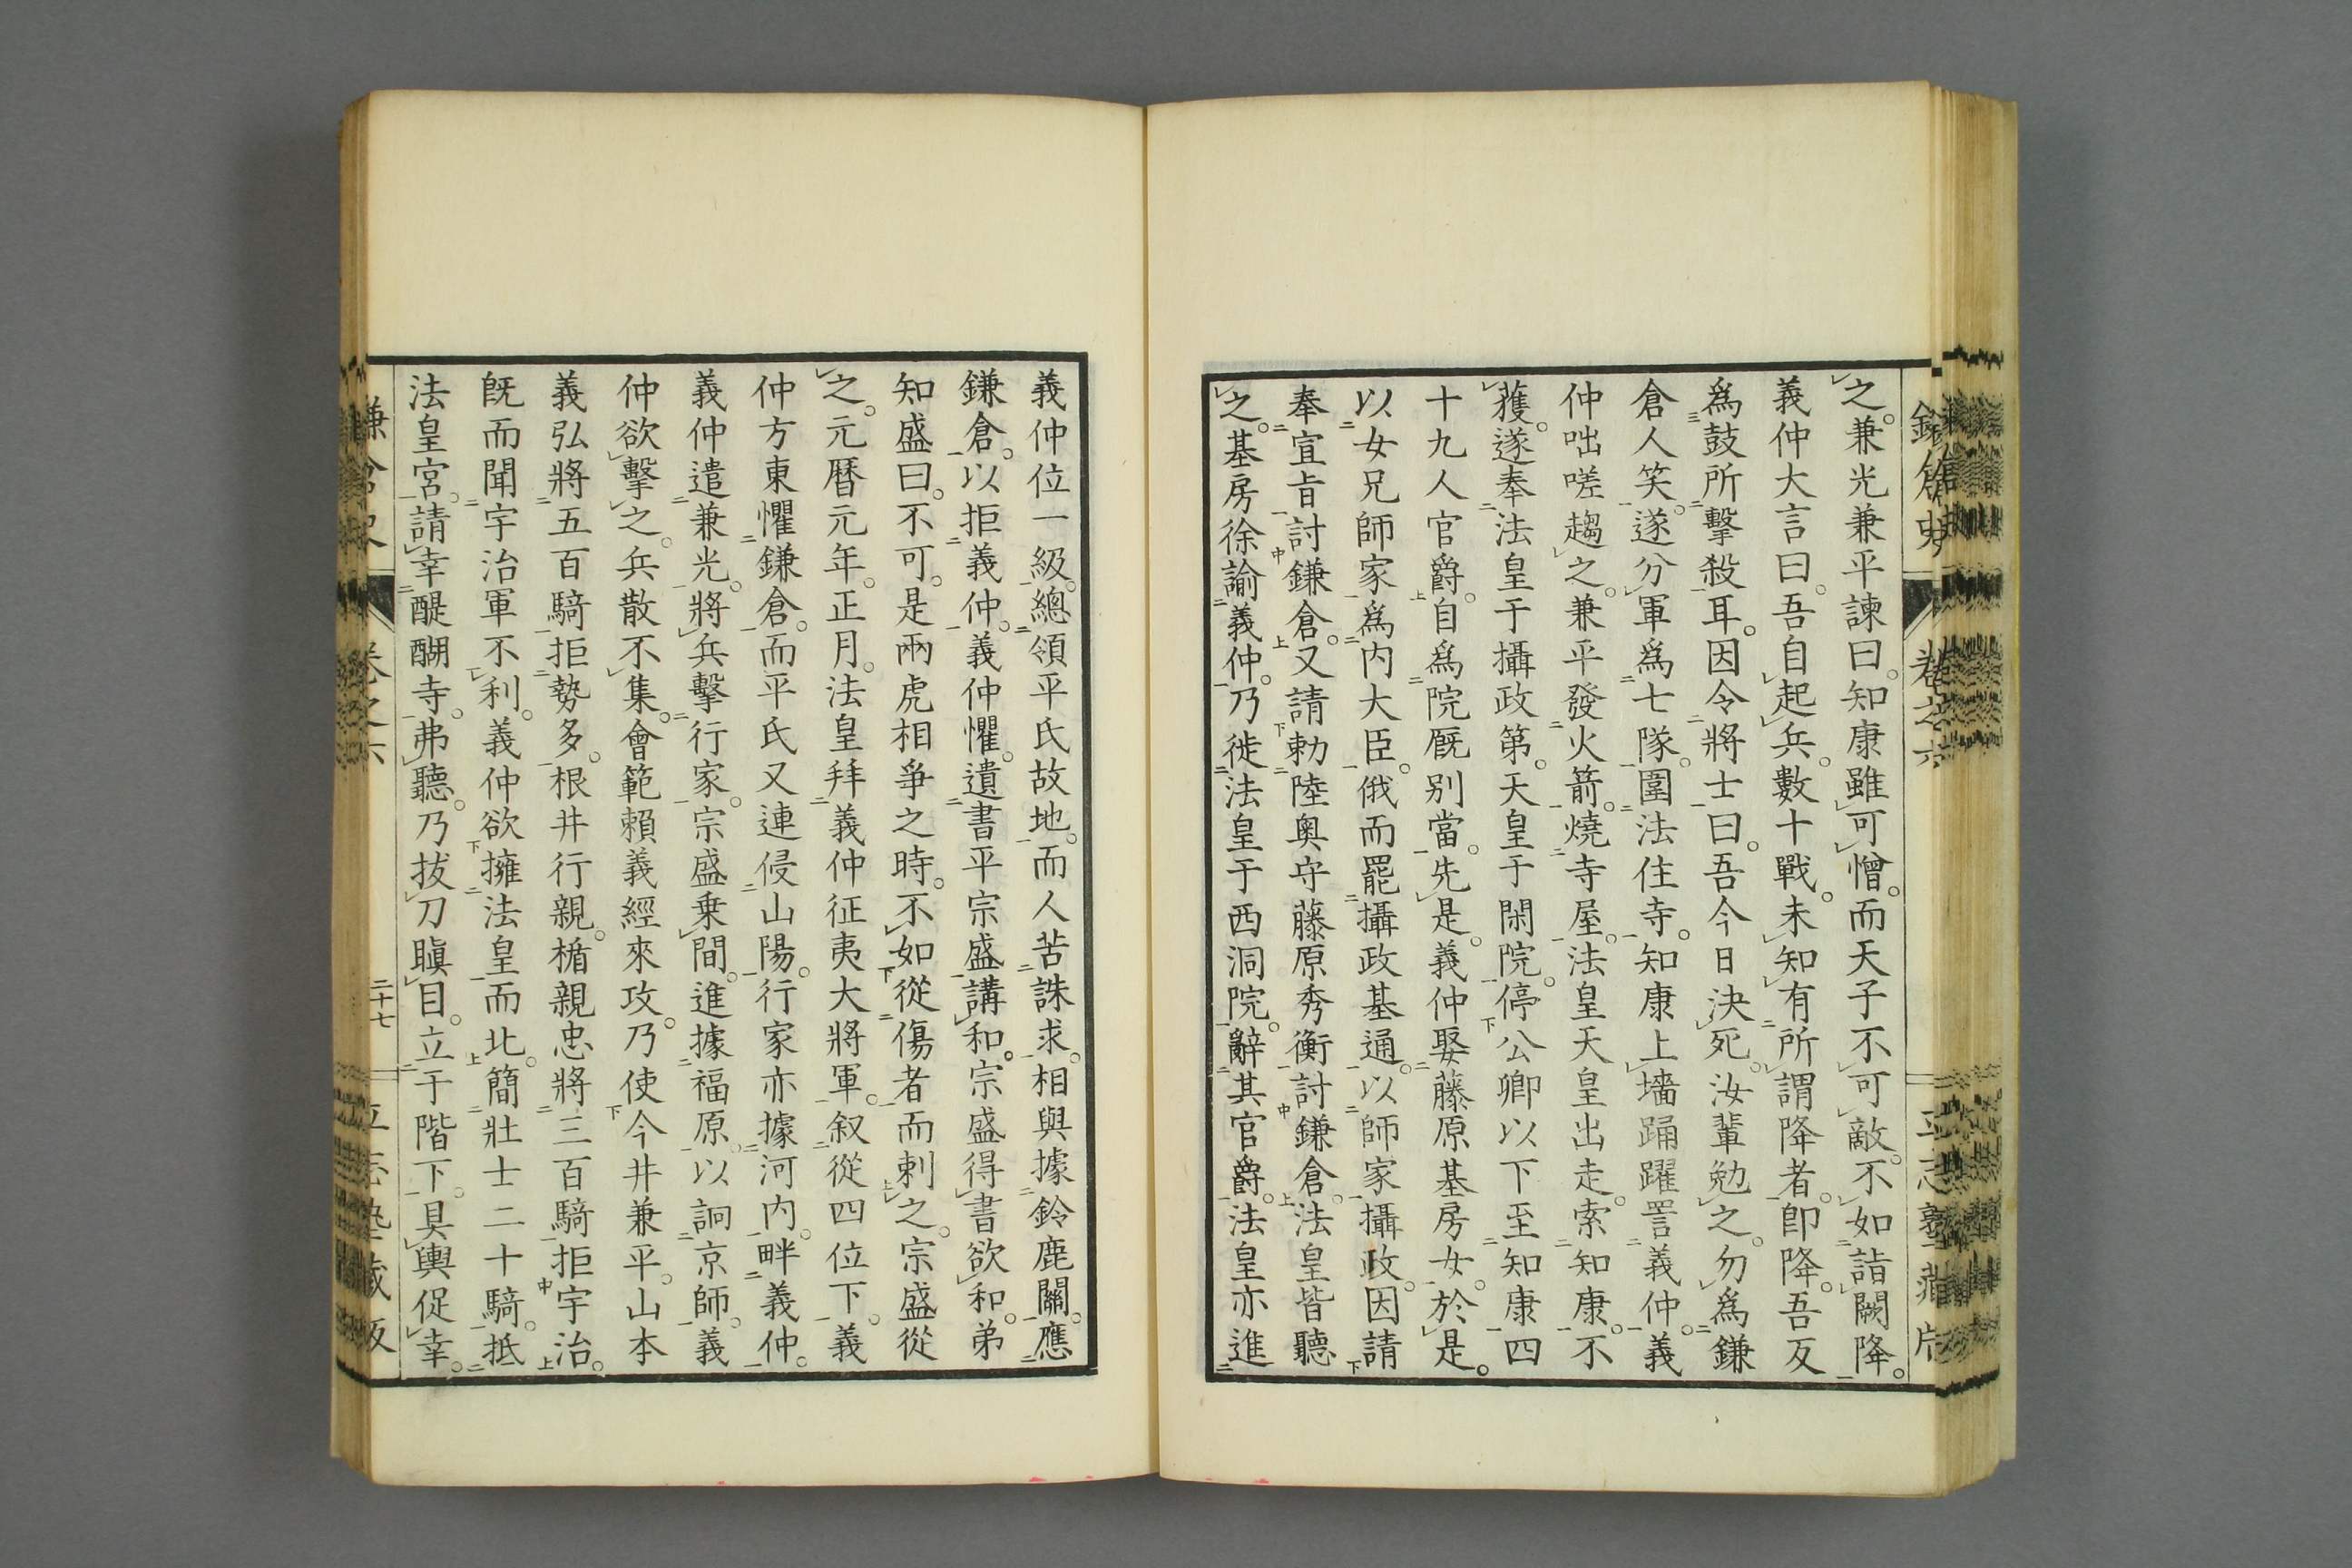 之。兼光兼平諫曰。知康雖可憎。而天子不可敵。不如詣闕降。
義仲大言曰。吾自起兵。數十戰。未知有所謂降者。卽降。吾反
爲鼓所擊殺耳。因令將士曰。吾今日決死。汝輩勉之。勿爲鎌
倉人笑。遂分軍爲七隊。圍法住寺。知康上墻踊躍詈義仲。義
仲咄嗟趨之。兼平發火箭。燒寺屋。法皇天皇出走。索知康。不
獲。遂奉法皇于攝政第。天皇于閑院。停公卿以下至知康四
十九人官爵。自爲院厩別當。先是。義仲娶藤原基房女。於是。
以女兄師家爲内大臣。俄而罷攝政基通。以師家攝政。因請
奉宣旨討鎌倉。又請勅陸奥守藤原秀衡討鎌倉。法皇皆聽
之。基房徐諭義仲。乃徙法皇于西洞院。辭其官爵。法皇亦進
義仲位一級。總領平氏故地。而人苦誅求。相與據鈴鹿關。應
鎌倉。以拒義仲。義仲懼。遺書平宗盛講和。宗盛得書欲和。弟
知盛曰。不可。是兩虎相爭之時。不如從傷者而刺之。宗盛從
之。元曆元年。正月。法皇拜義仲征夷大將軍。叙從四位下。義
仲方東懼鎌倉。而平氏又連侵山陽。行家亦據河内。畔義仲。
義仲遣兼光。將兵擊行家。宗盛乘間。進據福原。以詗京師。義
仲欲擊之。兵散不集。會範賴義經來攻。乃使今井兼平。山本
義弘將五百騎拒勢多。根井行親。楯親忠將三百騎拒宇治。
旣而聞宇治軍不利。義仲欲擁法皇而北。簡壯士二十騎。抵
法皇宮。請幸醍醐寺。弗聽。乃拔刀瞋目。立于階下。具輿促幸。
卷之六
二十七